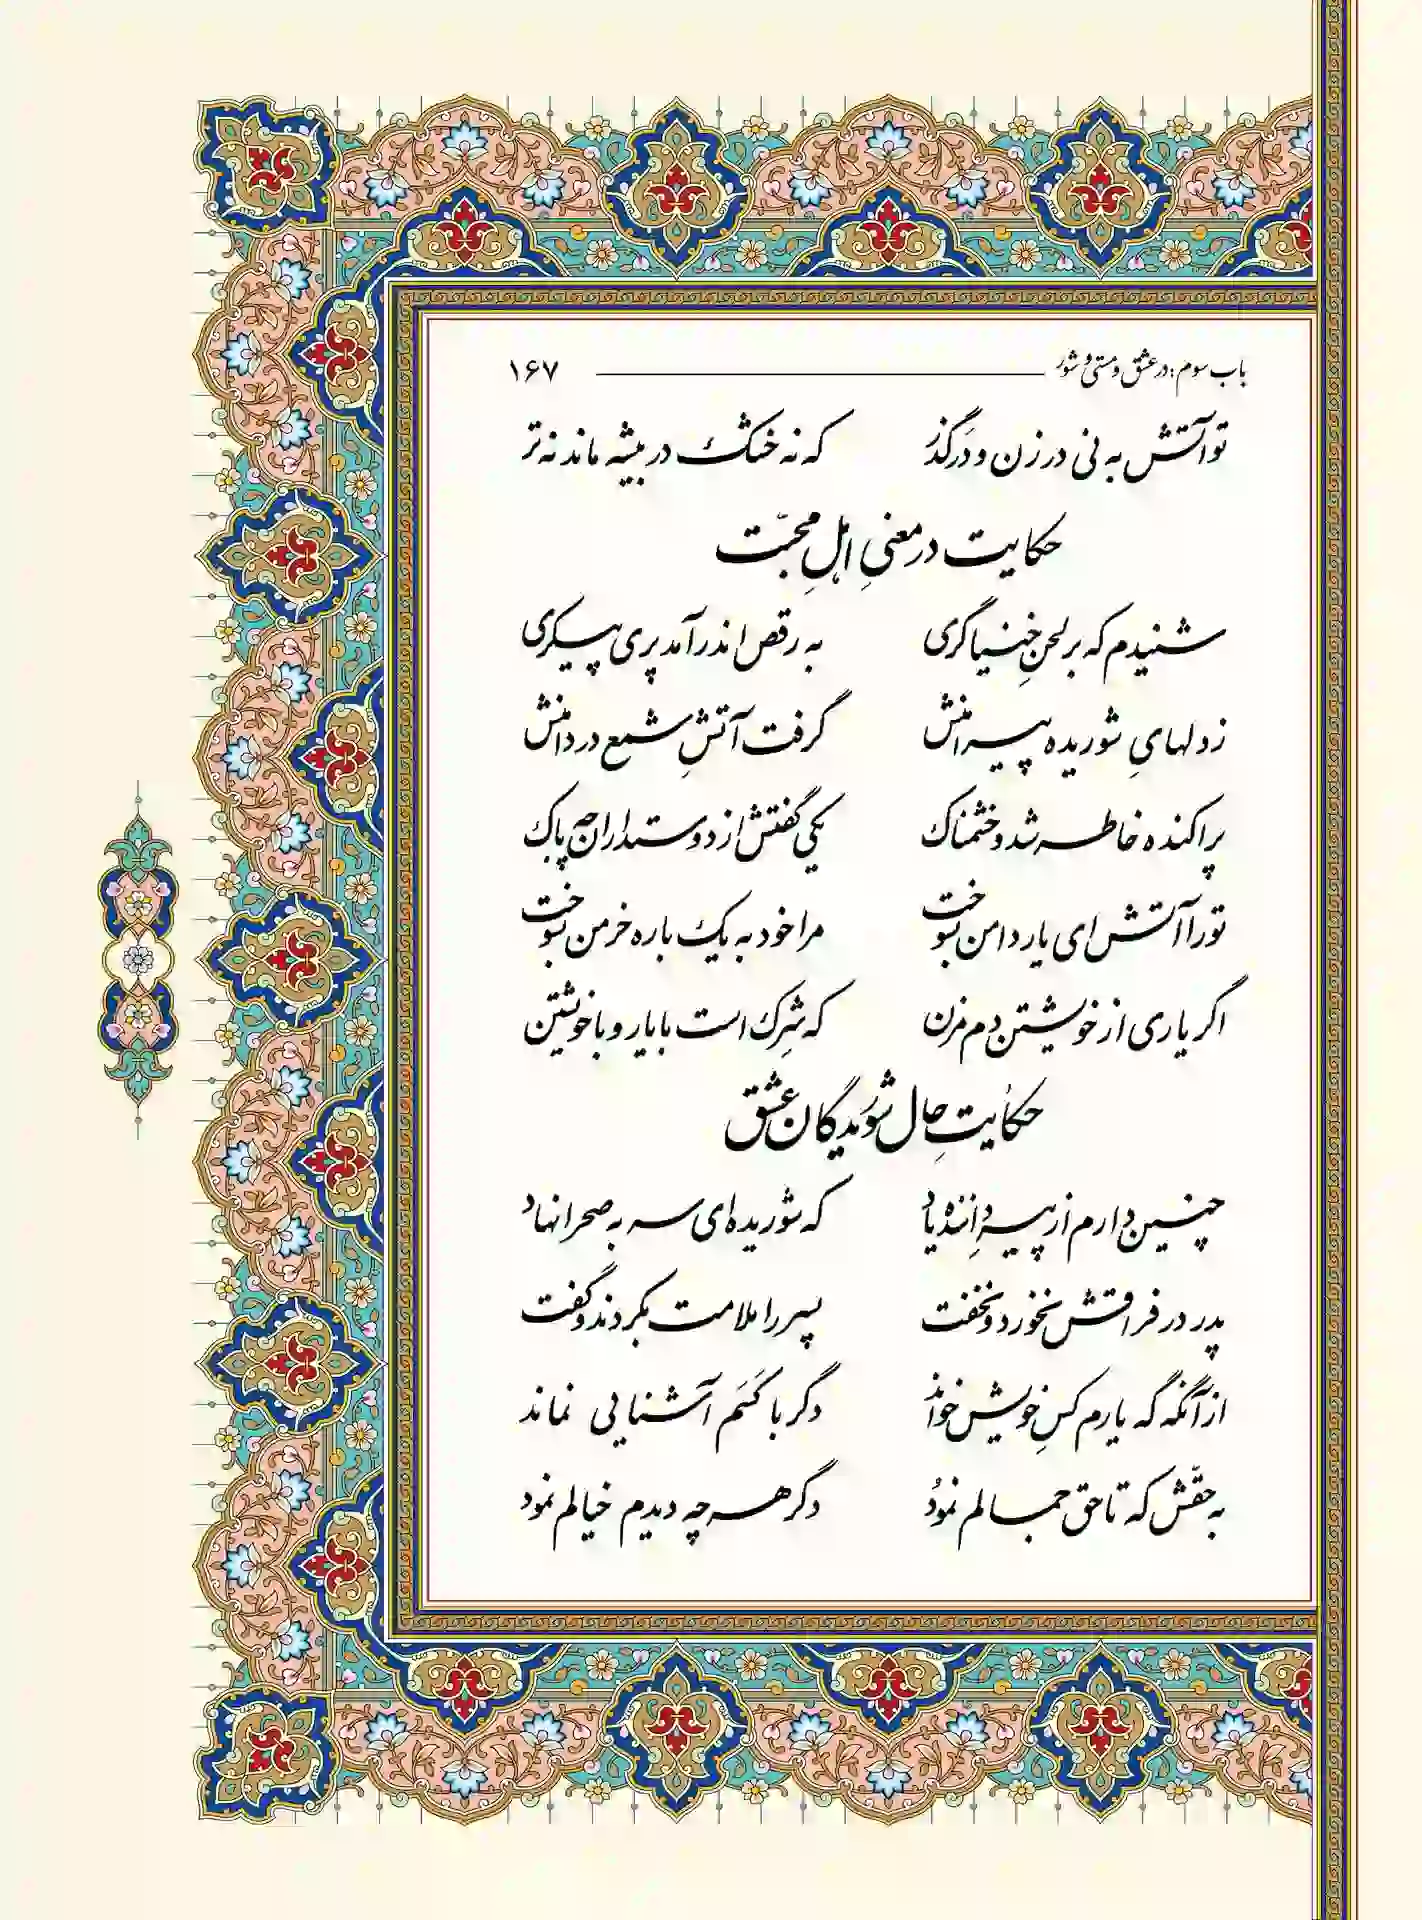 باب سوم: در عشق و مستی و شور ۱۶۷
تو آتش به نی درزن و دَرگذَر که نه خشک در بیشه ماند نه تر
حکایت در معنیِ اهلِ محبّت
شنیدم که بر لحنِ خنیاگری به رقص اندر آمد پری پیکری
ز دلهایِ شوریده پیرامنش گرفت آتشِ شمع در دامنش
پراکنده خاطر شد و خشمناک یکی گفتش از دوستداران چه باک
تو را آتش ای یار دامن بسوخت مرا خود به یک باره خرمن بسوخت
اگر یاری از خویشتن دم مزن که شِرک است با یار و با خویشتن
حکایتِ حال شوریدگان عشق
چنین دارم از پیرِ داننده یاد که شوریده‌ای سر به صحرا نهاد
پدر در فراقش نخورد و نخفت پسر را ملامت بکردند و گفت
از آنگه که یارم کسِ خویش خواند دگر با کَسَم آشنایی نماند
به حقّش که تا حق جمالم نمود دگر هر چه دیدم خیالم نمود